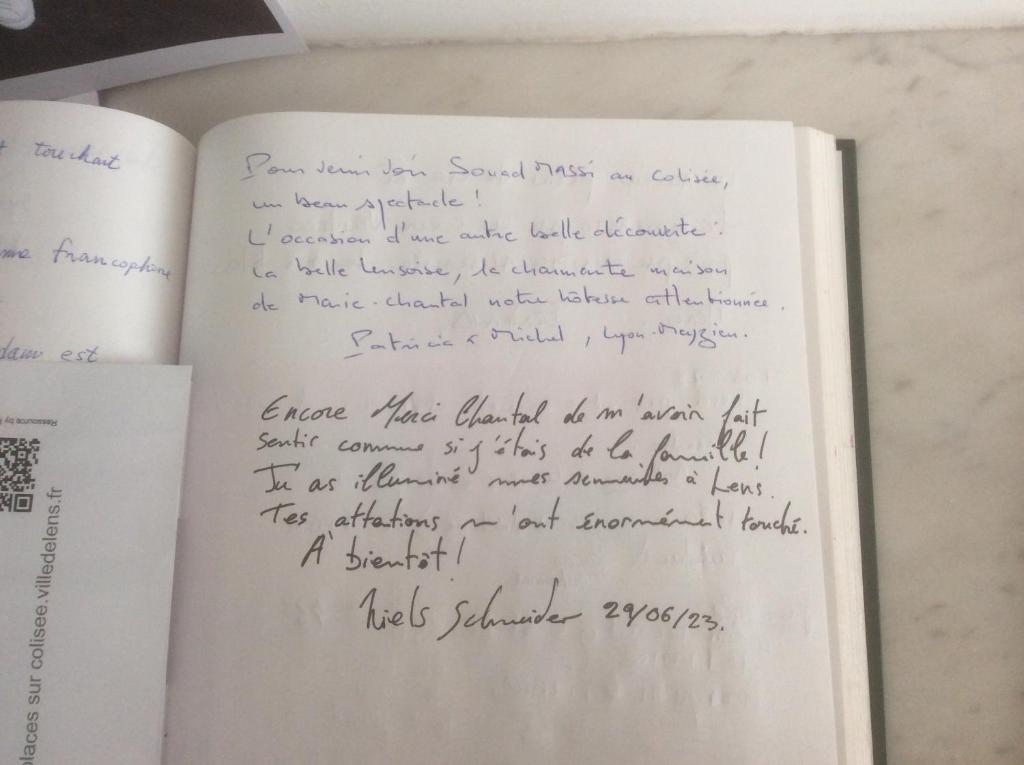 touchant
francophone
est
Pour venir voir Souad Massi au Colisée,
un beau spectacle !
L'occasion d'une autre belle découverte :
La belle Lensoise, la charmante maison
de Marie-Chantal notre hôtesse attentionnée.
Patricia & Michel, Lyon-Meyzieu.
Encore Merci Chantal de m'avoir fait
sentir comme si j'étais de la famille !
Tu as illuminé mes semaines à Lens.
Tes attations m'ont énormément touché.
À bientôt !
Niels Schneider 29/06/23.
Ressource by
places sur colisee.villedelens.fr